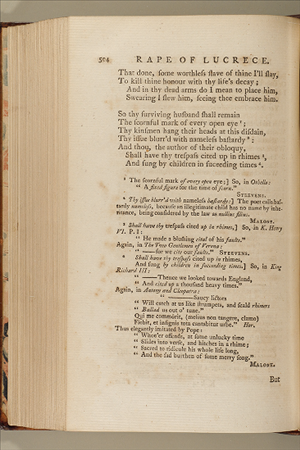 504 RAPE OF LUCRECE.
That done, some worthless slave of thine I'll slay,
To kill thine honour with thy life's decay;
And in thy dead arms do I mean to place him,
Swearing I slew him, seeing thee embrace him.
So thy surviving husband shall remain
The scornful mark of every open eye ¹;
Thy kinsmen hang their heads at this disdain,
Thy issue blurr'd with nameless bastardy ²:
And thou, the author of their obloquy,
Shall have thy trespass cited up in rhimes ³,
And sung by children in succeeding times ⁴.
¹ The scornful mark of every open eye;] So, in Othello:
" A fixed figure for the time of scorn."
STEEVENS.
² Thy issue blurr'd with nameless bastardy:] The poet calls bas-
tardy nameless, because an illegitimate child has no name by inhe-
ritance, being considered by the law as nullius filius.
MALONE.
³ Shall have thy trespass cited up in rhimes,] So, in K. Henry
IV. P. I:
" He made a blushing cital of his faults."
Again, in The Two Gentlemen of Verona:
" —for we cite our faults." STEEVENS.
⁴ Shall have thy trespass cited up in rhimes,
And sung by children in succeeding times.] So, in King
Richard III:
" —Thence we looked towards England,
" And cited up a thousand heavy times."
Again, in Antony and Cleopatra:
" —Saucy lictors
" Will catch at us like strumpets, and scald rhimers
" Ballad us out o' tune."
Qui me commôrit, (melius non tangere, clamo)
Flebit, et insignis tota cantabitur urbe." Hor.
Thus elegantly imitated by Pope:
" Whoe'er offends, at some unlucky time
" Slides into verse, and hitches in a rhime;
" Sacred to ridicule his whole life long,
" And the sad burthen of some merry song."
MALONE.
But